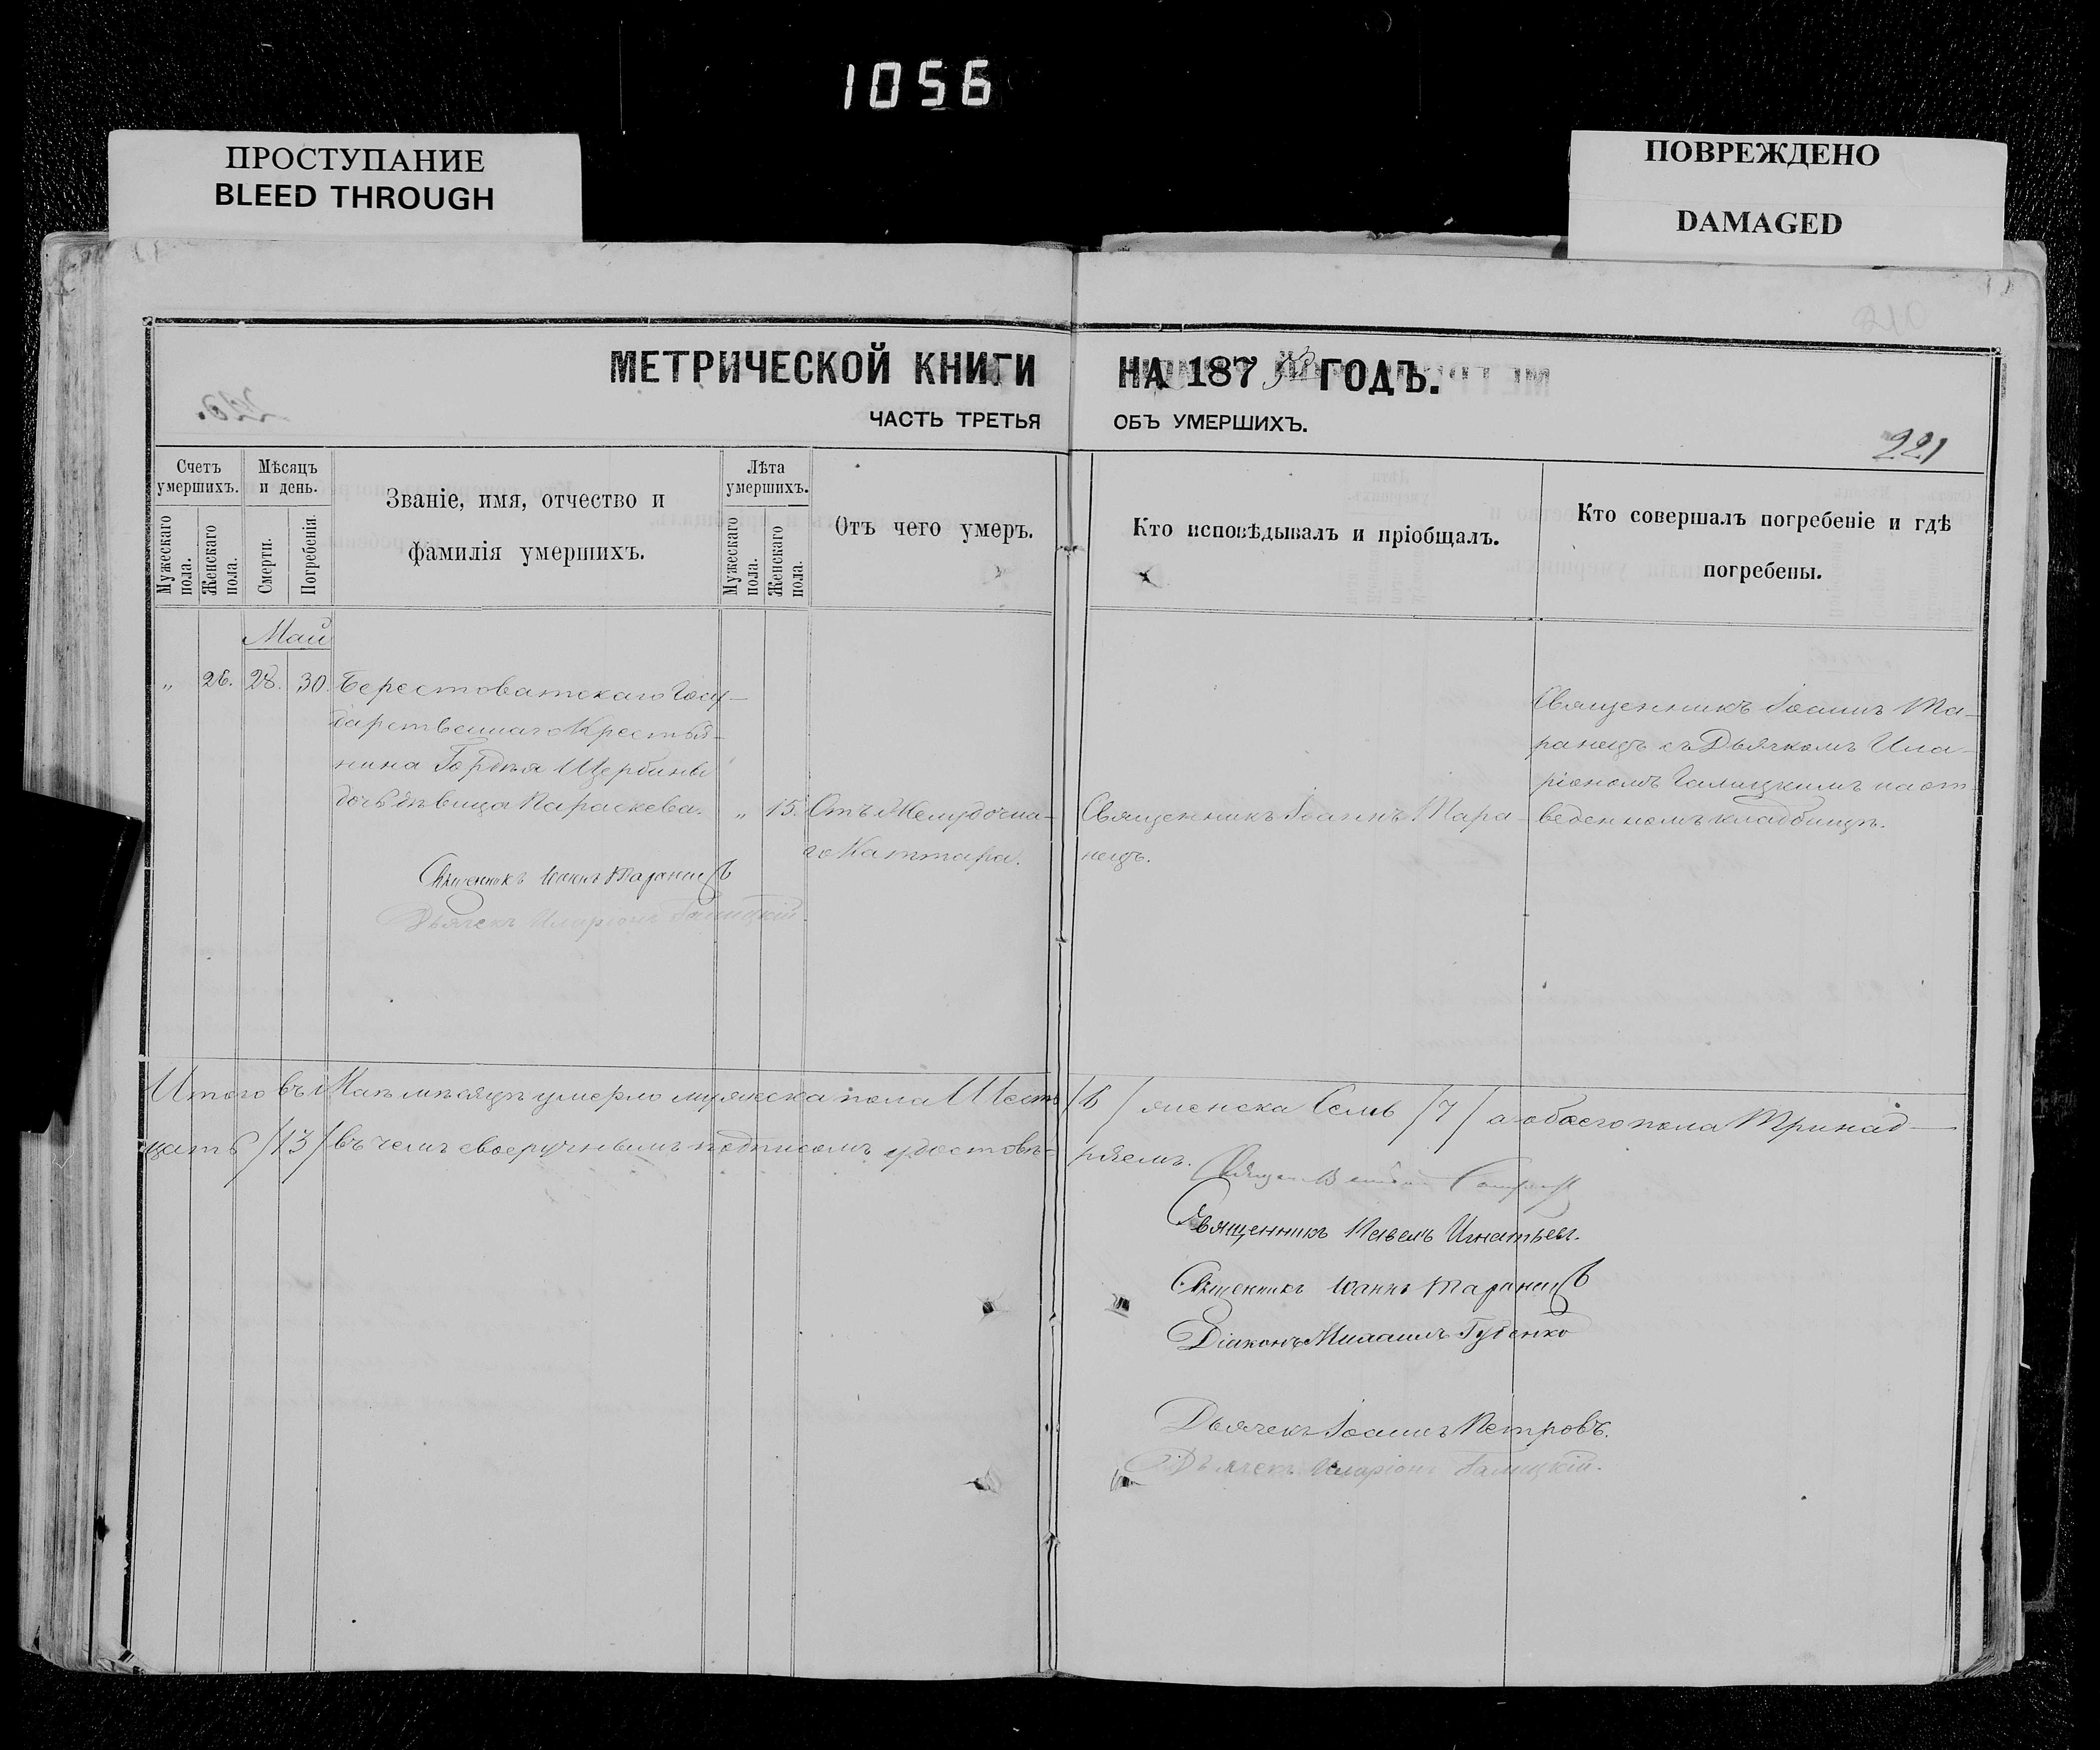 1056
ПРОСТУПАНИЕ
BLEED THROUGH
ПОВРЕЖДЕНО
DAMAGED
МЕТРИЧЕСКОЙ КНИГИ НА 187 ГОДЪ.
ЧАСТЬ ТРЕТЬЯ ОБЪ УМЕРШИХЪ.
221
Счетъ умершихъ.
Мужескаго пола.
Женскаго пола.
Мѣсяцъ и день.
Смерти.
Погребенія.
Званіе, имя, отчество и
фамилія умершихъ.
Лѣта умершихъ.
Мужескаго пола.
Женскаго пола.
Отъ чего умеръ.
Кто исповѣдывалъ и пріобщалъ.
Кто совершалъ погребеніе и гдѣ
погребены.
Май
„ 26. 28. 30. Берестоватскаго Госу-
дарственнаго Крестья-
нина Гордѣя Щербины
дочь дѣвица Параскева. „ 15.
Отъ Желудочна-
го Каттара.
Священникъ Іоаннъ Тара-
нецъ.
Священникъ Іоаннъ Та-
ранецъ съ Дьячкомъ Ила-
ріономъ Галицкимъ на от-
веденномъ кладбищѣ.
Священникъ Іоаннъ Таранецъ
Дьячекъ Иларіонъ Галицкій
Итого въ Маѣ мѣсяцѣ умерло мужеска пола Шесть /6/ женска Семь /7/ а обоего пола Тринад-
цать /13/ въ чемъ своеручнымъ подписомъ удостовѣ-ряемъ.
Священникъ Павелъ Игнатьевъ.
Священникъ Іоаннъ Таранецъ
Діаконъ Михаилъ Губенко
Дьячекъ Іоаннъ Петровъ.
Дьячекъ Иларіонъ Галицкій.